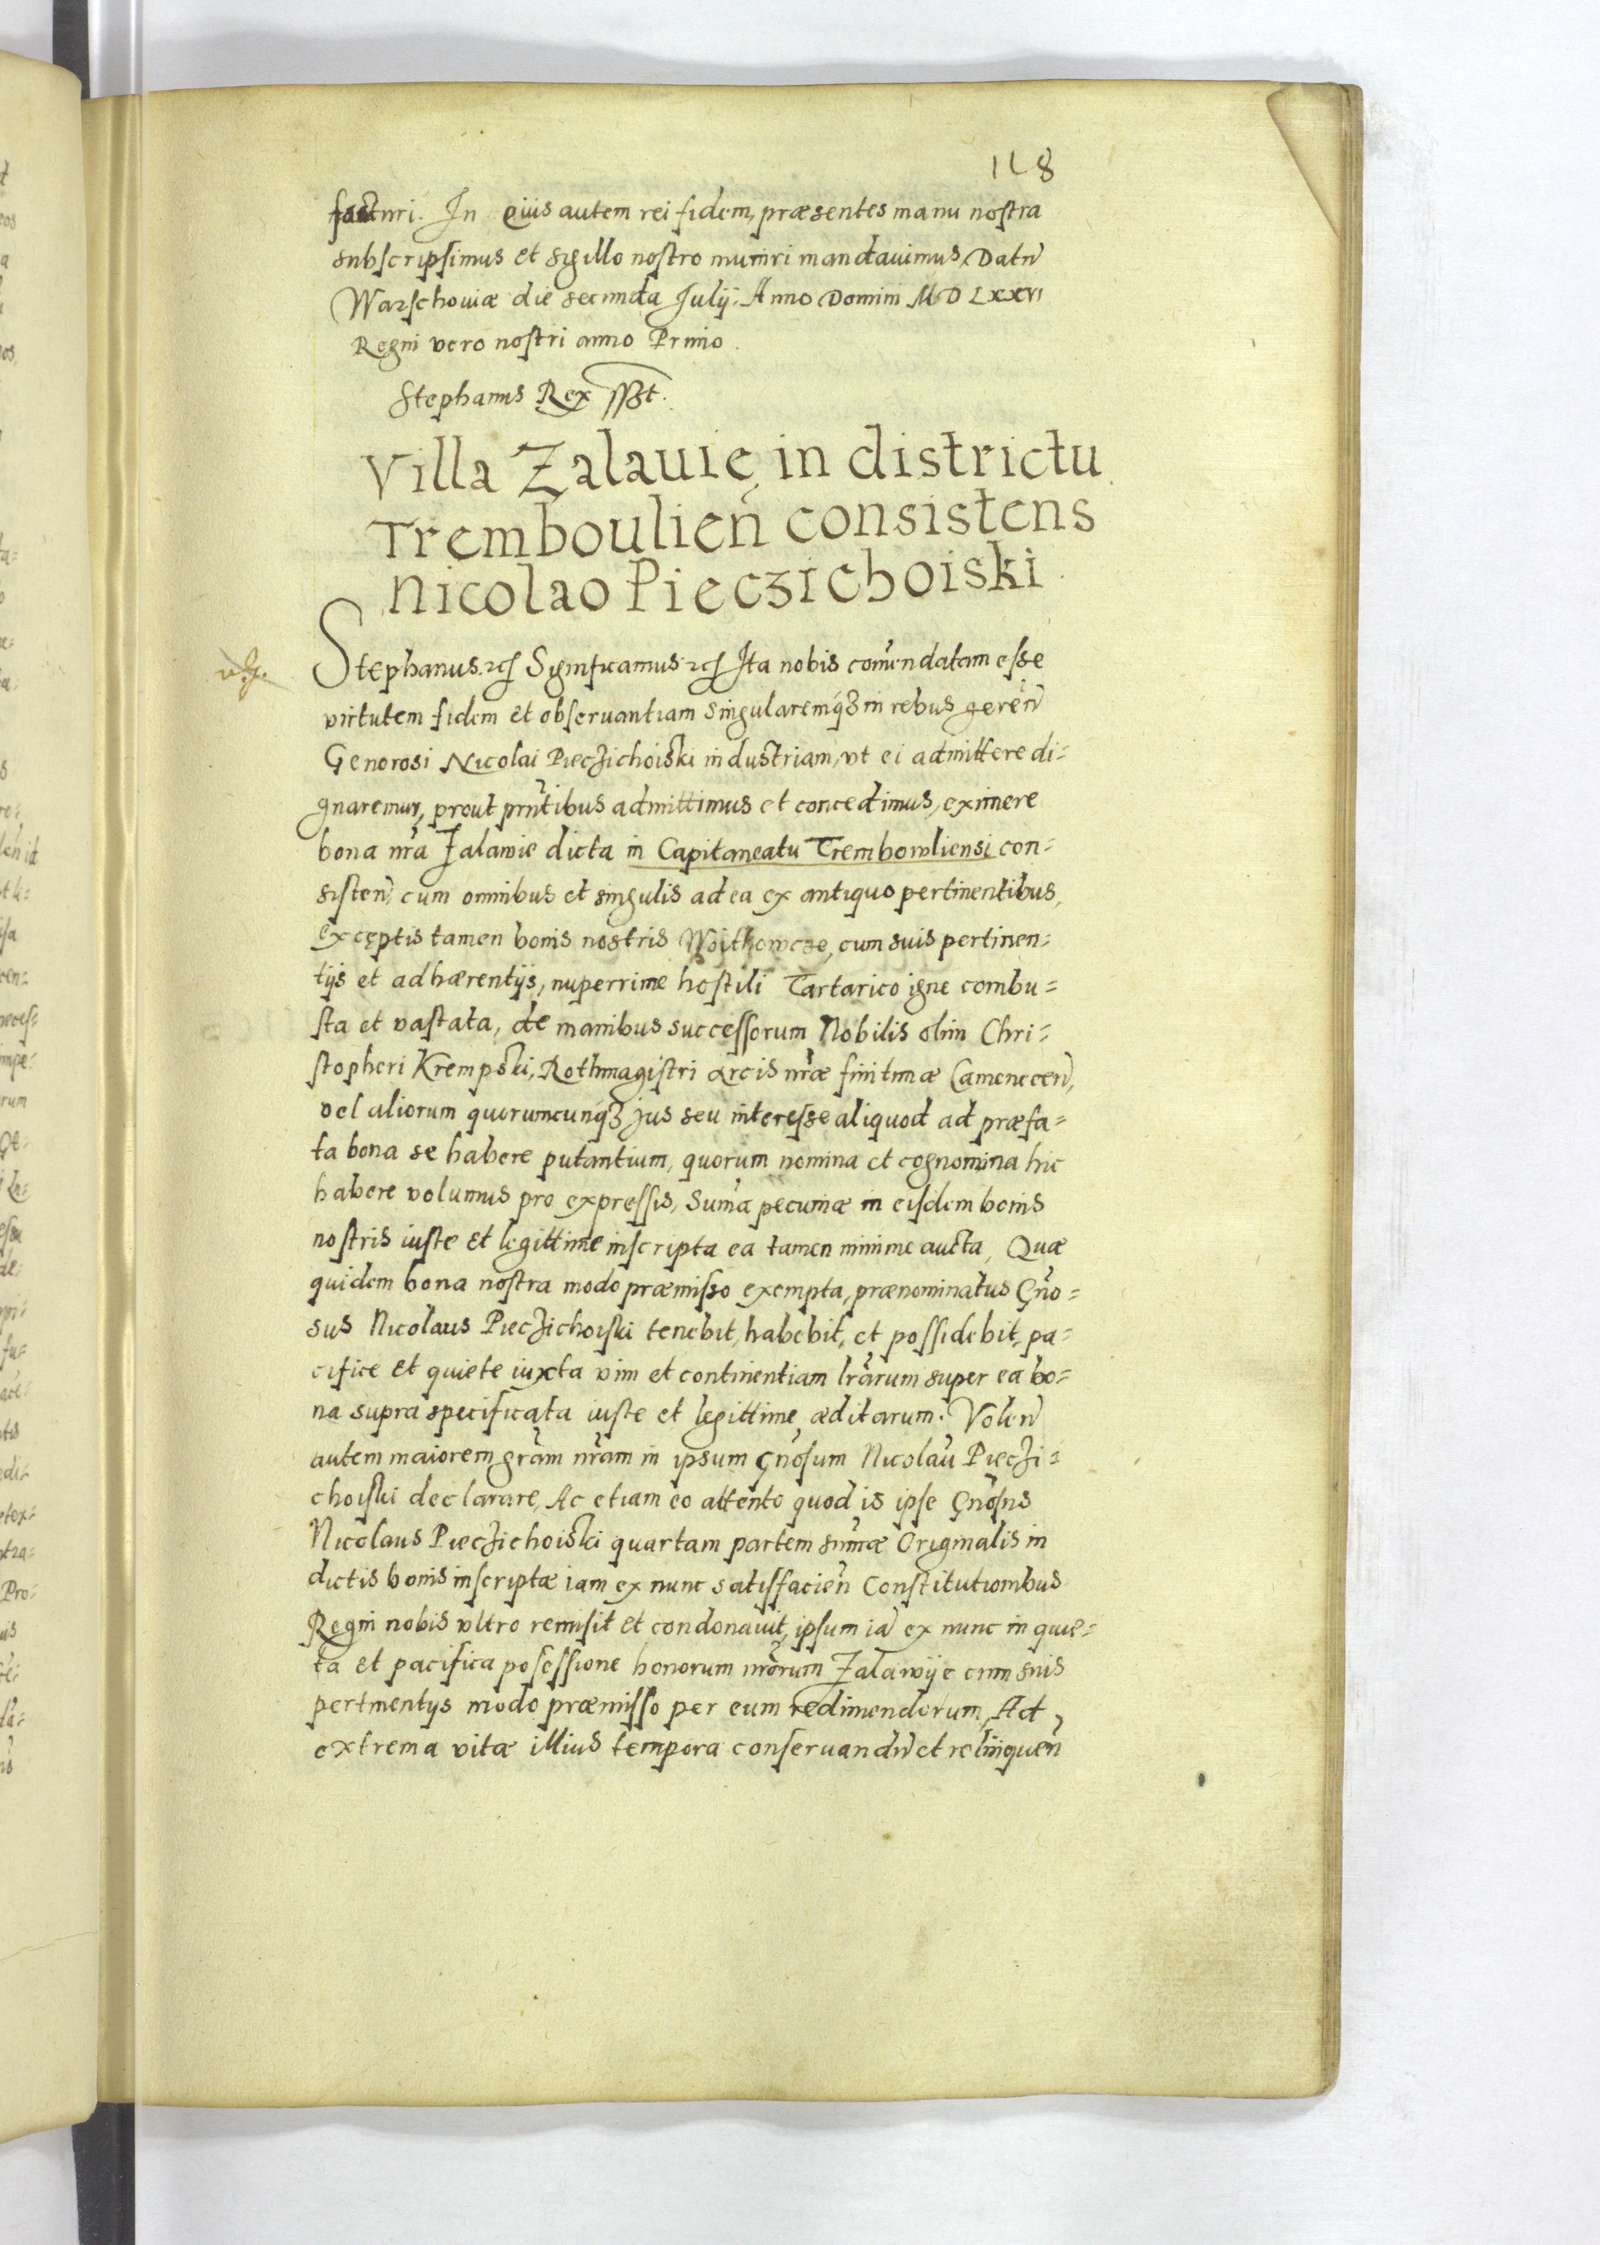 118
facturi. In cuius autem rei fidem, præsentes manu nostra
subscripsimus et sigillo nostro muniri mandauimus, Datū
Warschouiæ die secunda Julÿ. Anno Domini MD LXXVI
Regni vero nostri anno Primo.
Stephanus Rex sst.
Villa Zalauię in districtu
Trembouliēn consistens
Nicolao Pieczichoiski
Stephanus. etc Significamus etc Ita nobis comēndatam esse
virtutem fidem et obseruantiam singularemq3 in rebus gerēn
Generosi Nicolai Pieczichoiski industriam, vt ei admittere di=
gnaremur, prout pn̄tibus admittimus et concedimus, eximere
bona nr̄a Zalawie dicta in Capitaneatu Trembowliensi con=
sisteñ, cum omnibus et singulis ad ea ex antiquo pertinentibus,
exceptis tamen bonis nostris Woithowcze, cum suis pertinen=
tÿs et adhærentÿs, nuperrime hostili Tartarico igne combu=
sta et vastata, de manibus successorum Nobilis olim Chri=
stopheri Krempski, Rothmagistri arcis nr̄æ finitimæ Cameneceñ,
vel aliorum quorumcunq3 jus seu interesse aliquod ad præfa=
ta bona se habere putantium, quorum nomina et cognomina hic
habere volumus pro expressis, Sum̄a pecuniæ in eisdem bonis
nostris iuste et legittime inscripta ea tamen minime aucta, Quæ
quidem bona nostra modo præmisso exempta, prænominatus Gn̄o=
sus Nicolaus Pieczichoiski tenebit, habebit, et possidebit, pa=
cifice et quiete iuxta vim et continentiam lr̄arum super ea bo=
na supra specificata iuste et legittime æditarum. Voleñ
autem maiorem gr̄am nr̄am in ipsum Gn̄osum Nicolaū Pieczi=
choiski declarare, Ac etiam eo attento quod is ipse Gn̄osus
Nicolaus Pieczichoiski quartam partem sum̄æ Originalis in
dictis bonis inscriptæ iam ex nunc satisfacieñ Constitutionibus
Regni nobis vltro remisit et condonauit, ipsum iā ex nunc in quie=
ta et pacifica posessione bonorum nr̄orum Zalawÿe cum suis
pertinentÿs modo præmisso per eum redimendorum, Ad
extrema vitæ illius tempora conseruandū et relinqueñ